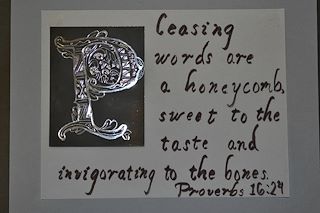 P Leasing
words are
a honeycomb,
sweet to the
taste and
invigorating to the bones.
Proverbs 16:24